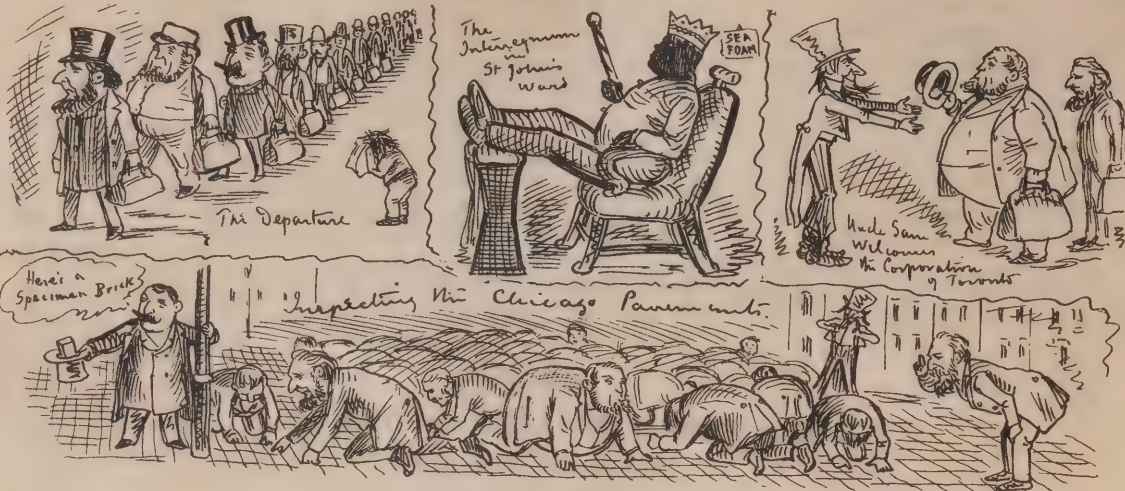 The Departure
The
Interregnum
in
St John's
Ward
SEA
FOAM
Uncle Sam
Welcomes
the Corporation
of Toronto
Here's a
Specimen Brick
now
Inspecting the Chicago Pavements.